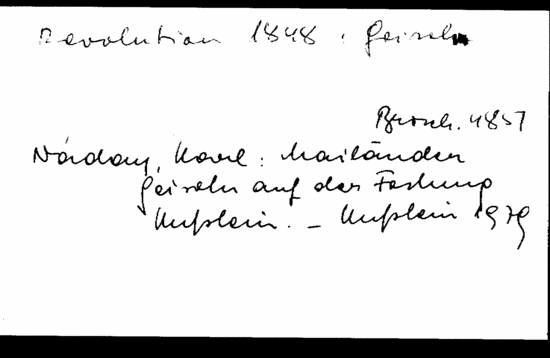 Revolution 1848 : Geiseln
Brosch. 4857
Nárday, Karl : Mailänder
Geiseln auf der Festung
Kufstein. – Kufstein 1979